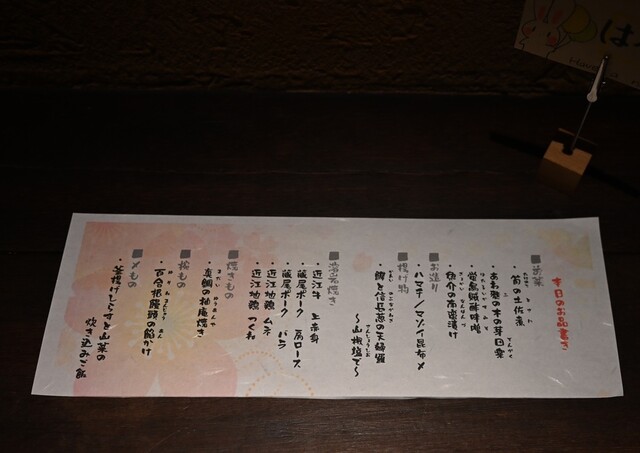 本日のお品書き
■お菜
・筍の土佐煮
・あわ麩の木の芽田楽
・蛍烏賊酢味噌
・魚介の南蛮漬け
■お造り
ハマチ/マゾイ昆布〆
■揚げ物
・鰆と信長葱の天婦羅
～山椒塩で～
■溶岩焼き
・近江牛 上赤身
・蔵尾ポーク 肩ロース
・蔵尾ポーク バラ
・近江地鶏 ムネ
・近江地鶏 つくね
■焼きもの
・真鯛の柚庵焼き
■椀もの
・百合根饅頭の餡かけ
■〆もの
・釜揚げしらすと山菜の
炊き込みご飯
は